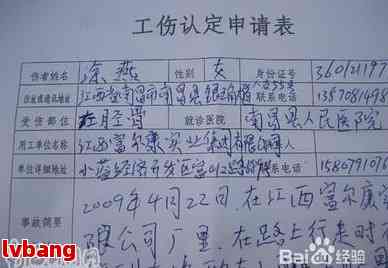 工伤认定申请表
伤者姓名 涂燕 性别 女 身份证号 360121197
住址或通讯地址 江西省南昌市南昌县 联系电话 1357081498
受伤部位 就诊医院 南昌县人民医院
用工单位名称 江西富尔康实业集团有限公司
单位详细地址 小蓝经济开发区富山 联系电话
2009年4月22日,在江西富尔康实
事故简要 限公司厂里,在路上行走时
lvbang
Baidu经验